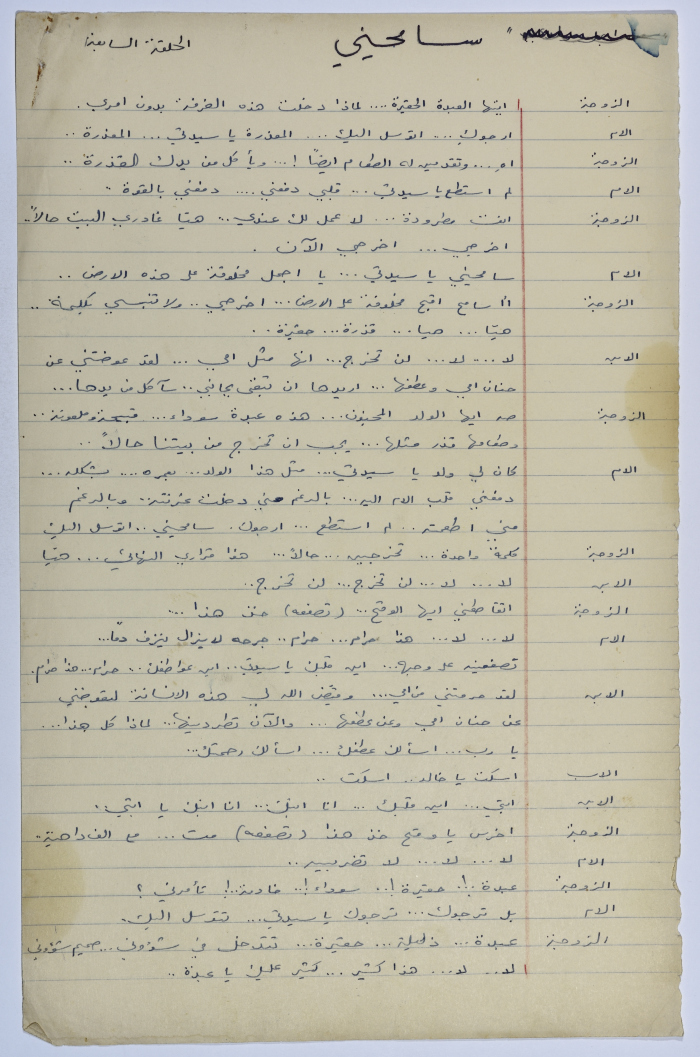 سامحيني
الحلقة السابعة
الزوجة ايتها العبدة الحقيرة .... لماذا دخلت هذه الغرفة بدون امري .
الام ارجوك ... اتوسل اليك ... المعذرة يا سيدتي ... المعذرة ..
الزوجة اهٍ ... وتقدمين له الطعام ايضاً ! ... ويأكل من يدك القذرة ..
الام لم استطع يا سيدتي ... قلبي دفعني .... دفعني بالقوة .
الزوجة انت مطرودة ... لا عمل لك عندي ... هيا غادري البيت حالاً ..
اخرجي ... اخرجي الآن .
الام سامحيني يا سيدتي ... يا اجمل مخلوقة على هذه الارض ..
الزوجة انا سامح اقبح مخلوقة على الارض ... اخرجي .. ولا تنبسي بكلمة ..
هيّا ... هيا ... قذرة ... حقيرة ..
الابن لا ... لا ... لن تخرج ... انها مثل امي ... لقد عوضتني عن
حنان امي وعطفها ... اريدها ان تبقى بجانبي .. سآكل من يدها ...
الزوجة صه ايها الولد المجنون ... هذه عبدة سوداء ... قبيحة وملعونة ..
وطعامها قذر مثلها ... يجب ان تخرج من بيتنا حالاً ..
الام كان لي ولد يا سيدتي ... مثل هذا الولد ... بعمره ... بشكله ...
دفعني قلب الام اليه ... بالرغم مني دخلت غرفته .. وبالرغم
مني اطعمته .. لم استطع ... ارجوك . سامحيني .. اتوسل اليك
الزوجة كلمة واحدة ... تخرجين ... حالاً ... هذا قراري النهائي ... هيّا
الابن لا ... لا ... لن تخرج ... لن تخرج ..
الزوجة اتقاطعني ايها الوقح ... ( تصفعه ) خذ هذا ...
الام لا ... لا ... هذا حرام ... حرام .. جرحه لا يزال ينزف دماً ...
تصفعينه على وجهه ... اين قلبك يا سيدتي ... اين عواطفك .. حرام ... هذا حرام .
الابن لقد حرمتني من امي ... وقيّض الله لي هذه الانسانة لتعوضني
عن حنان امي وعن عطفها ... والآن تطردينها ... لماذا كل هذا ...
يا رب ... اسألك عطفك ... اسألك رحمتك ...
الاب اسكت يا خالد .. اسكت ..
الابن ابتي ... اين قلبك ... انا ابنك ... انا ابنك يا ابتي .
الزوجة اخرس يا وقح خذ هذا ( تصفعه ) مت ...
الام لا ... لا ... لا تضربيه ..
الزوجة عبدة ! .. حقيرة ! .. سوداء ! .. خادمة .. ! تأمرني ؟
الام بل ترجوك ... ترجوك يا سيدتي ... تتوسل اليك .
الزوجة عبدة ... ذليلة ... حقيرة ... تتدخل في شؤوني ... صميم شؤوني
لا .. لا ... هذا كثير ... كثير عليك يا عبدة ..